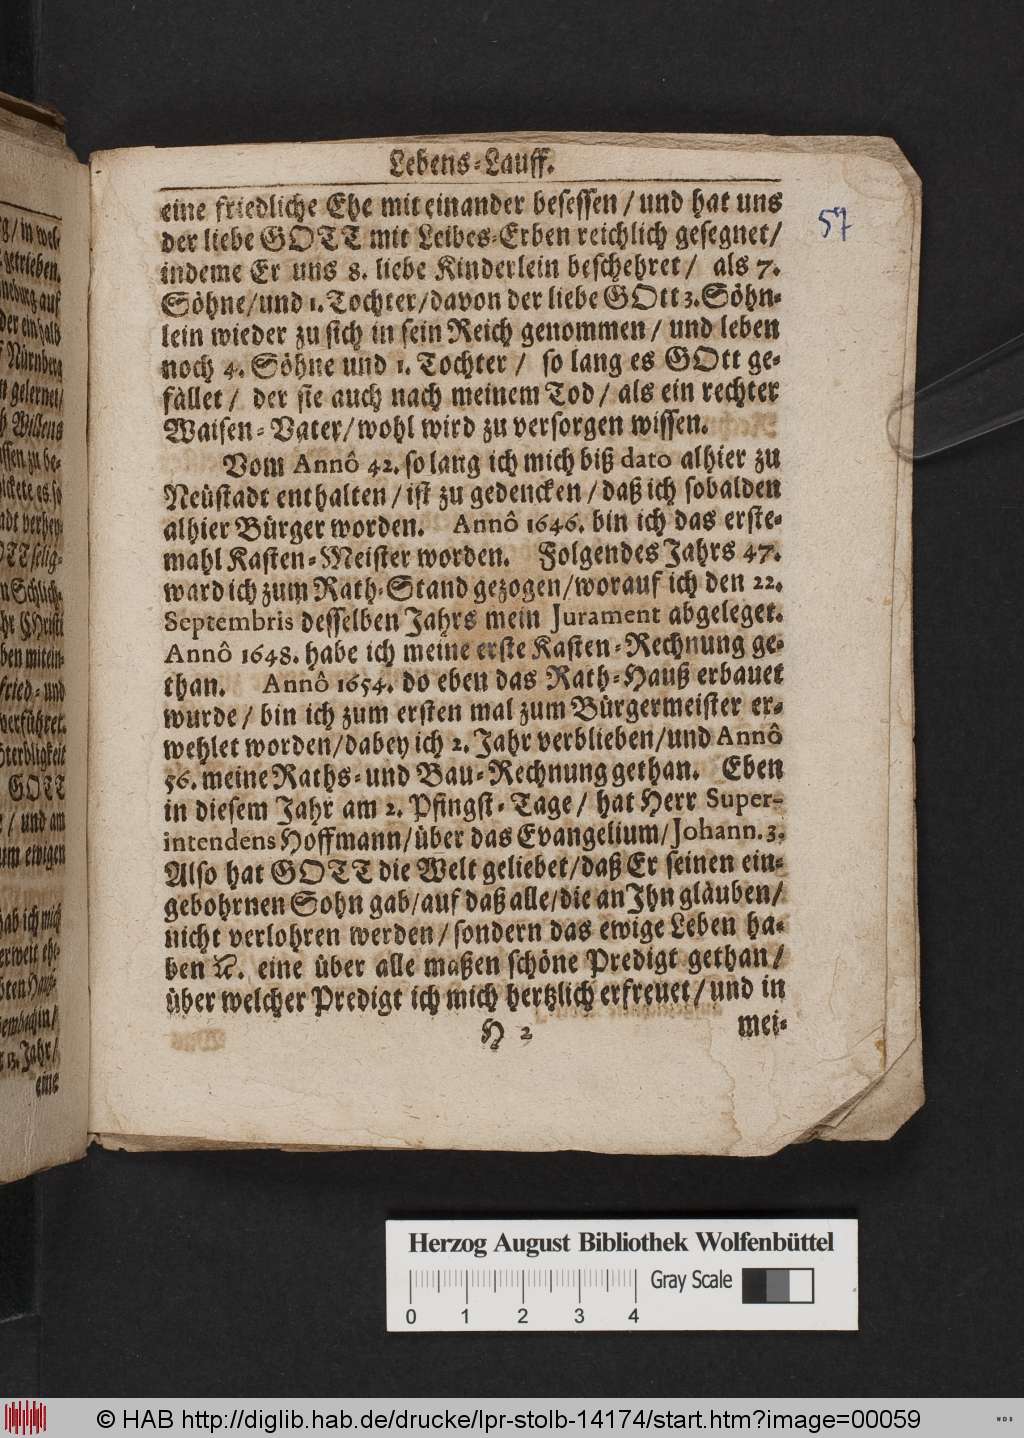 Lebens-Lauff.
eine friedliche Ehe mit einander besessen / und hat uns
der liebe GOTT mit Leibes-Erben reichlich gesegnet/
indeme Er uns 8. liebe Kinderlein beschehret / als 7.
Söhne/und 1. Tochter/davon der liebe GOtt 3. Söhn-
lein wieder zu sich in sein Reich genommen / und leben
noch 4. Söhne und 1. Tochter / so lang es GOtt ge-
fället / der sie auch nach meinem Tod / als ein rechter
Waisen-Vater/wohl wird zu versorgen wissen.
Vom Annô 42. so lang ich mich biß dato alhier zu
Neüstadt enthalten / ist zu gedencken / daß ich sobalden
alhier Bürger worden. Annô 1646. bin ich das erste-
mahl Kasten-Meister worden. Folgendes Jahrs 47.
ward ich zum Rath-Stand gezogen/worauf ich den 22.
Septembris desselben Jahrs mein Jurament abgeleget.
Annô 1648. habe ich meine erste Kasten-Rechnung ge-
than. Annô 1654. do eben das Rath-Hauß erbauet
wurde / bin ich zum ersten mal zum Bürgermeister er-
wehlet worden/dabey ich 2. Jahr verblieben/und Annô
56. meine Raths-und Bau-Rechnung gethan. Eben
in diesem Jahr am 2. Pfingst-Tage / hat Herr Super-
intendens Hoffmann/über das Evangelium/Johann. 3.
Also hat GOTT die Welt geliebet/daß Er seinen ein-
gebohrnen Sohn gab/auf daß alle/die an Ihn gläuben/
nicht verlohren werden / sondern das ewige Leben ha-
ben ꝛc. eine über alle maßen schöne Predigt gethan /
über welcher Predigt ich mich hertzlich erfreuet/und in
H 2 mei-
57
Herzog August Bibliothek Wolfenbüttel
0 1 2 3 4 Gray Scale
© HAB http://diglib.hab.de/drucke/lpr-stolb-14174/start.htm?image=00059